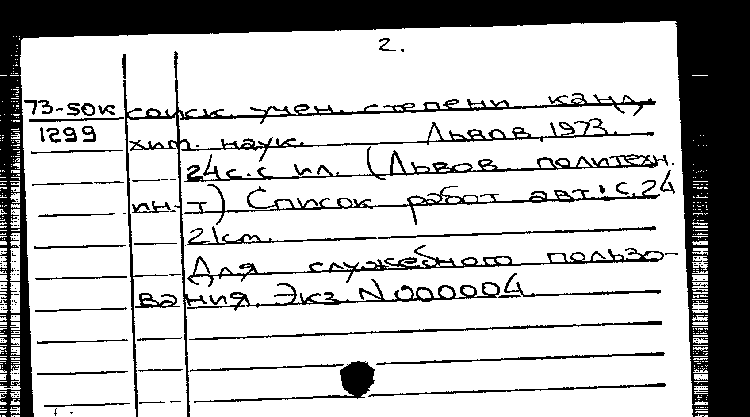 2.
73-50к соиск. учен. степени канд.
1299 хим. наук. Львов, 1973.
24с. с ил. (Львов политехн.
ин-т) Список работ авт: с. 24
21cm.
Для служебного пользо-
вания. Экз. N000004.